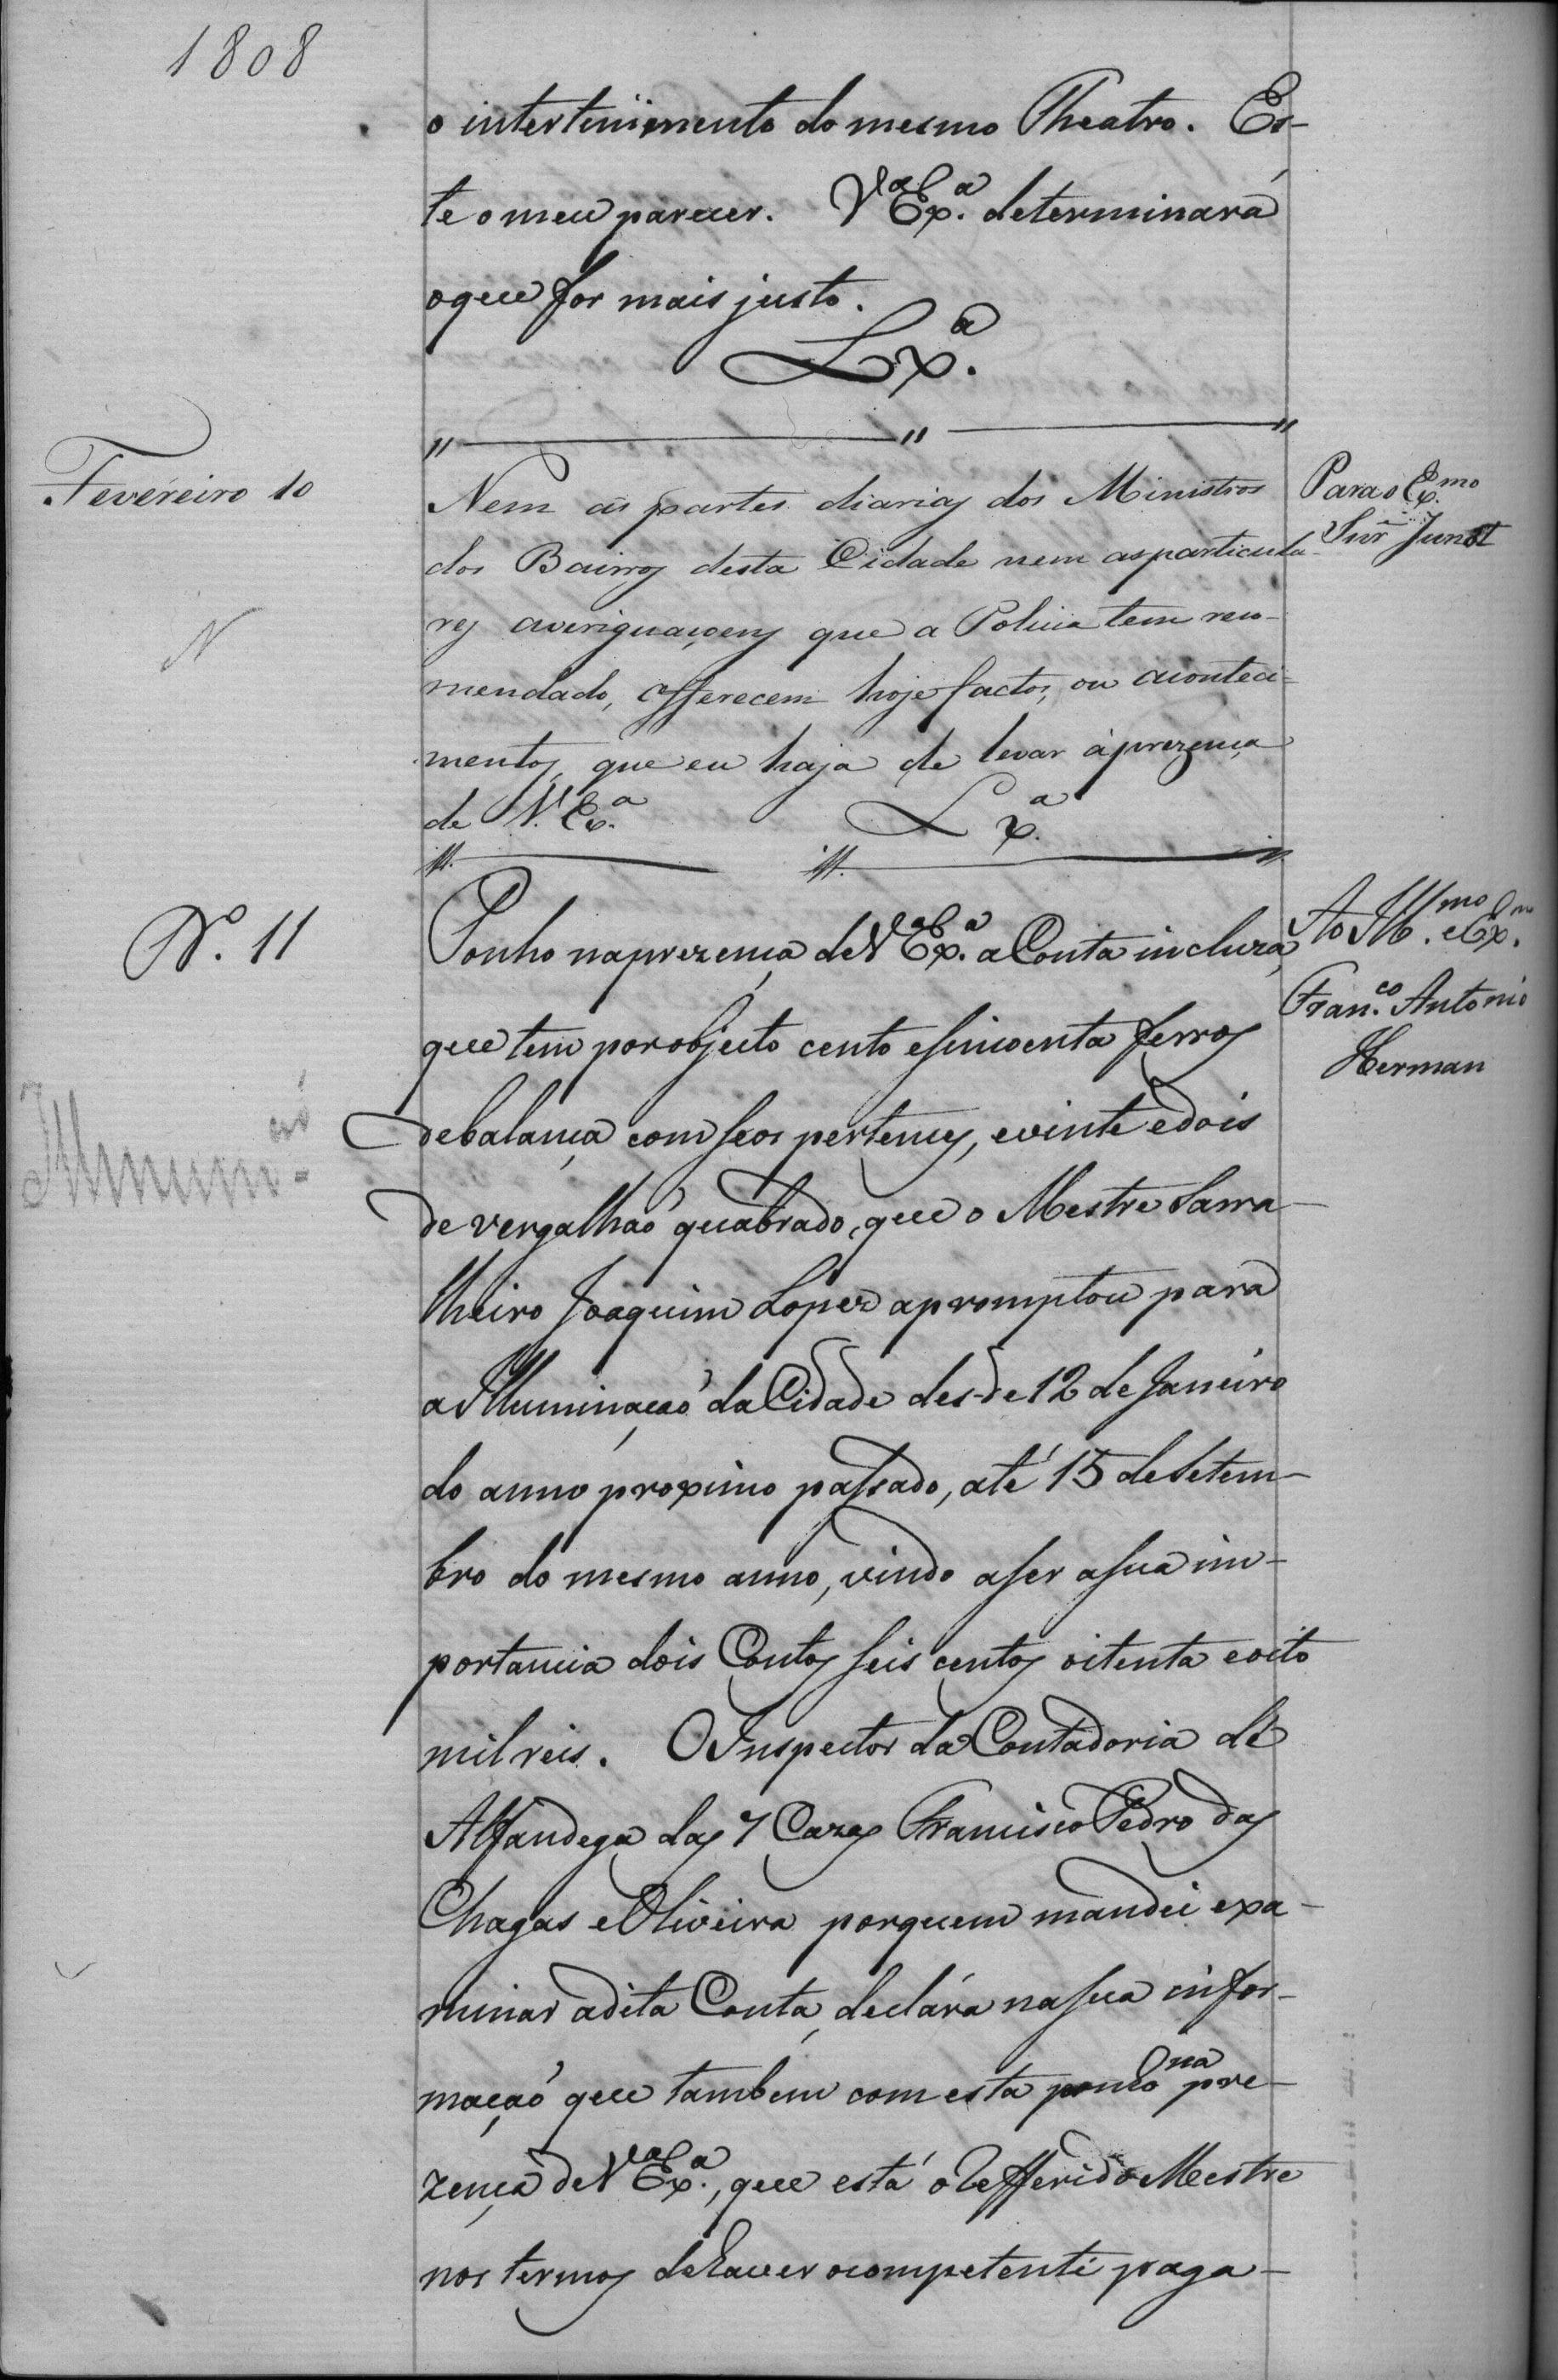 1808
o intertenimento do mesmo Theatro. Es-
te o meu parecer. Vª Exª. determinará
oque for mais justo.
Lxª.
Fevereiro 10
Para o Exmo
Snr Junot
Nem as partes diarias dos Ministros
dos Bairros desta Cidade nem as particula-
res averiguaçoens que a Policia tem reco-
N
mendado, offerecem hoje factos, ou aconteci-
mentos, que eu haja de levar á prezença
de V. Exª. Lxª.
Nº. 11
Ao Illmo. e Exmo.
Franco. Antonio
Herman
Ponho na prezença de Vª Exª. a Conta incluza,
que tem por objecto cento e sincoenta ferros
de balança com seos pertences, e vinte e dois
Illumin-ão
de vergalhaõ quadrado, que o Mestre Sarra-
lheiro Joaquim Lopez apromptou para
a Illuminaçaõ da Cidade des-de 12 de Janeiro
do anno proximo passado, até 15 de Setem-
bro do mesmo anno, vindo a ser a sua im-
portancia dois Contos seis centos oitenta e oito
mil reis. O Inspector da Contadoria de
Alfandega das 7 Cazas Francisco Pedro das
Chagas e Oliveira por quem mandei exa-
minar a dita Conta, declára na sua infor-
maçaõ que tambem com esta ponho na pre-
zença de Vª Exª., que está o Refferido Mestre
nos termos de haver o competente paga-